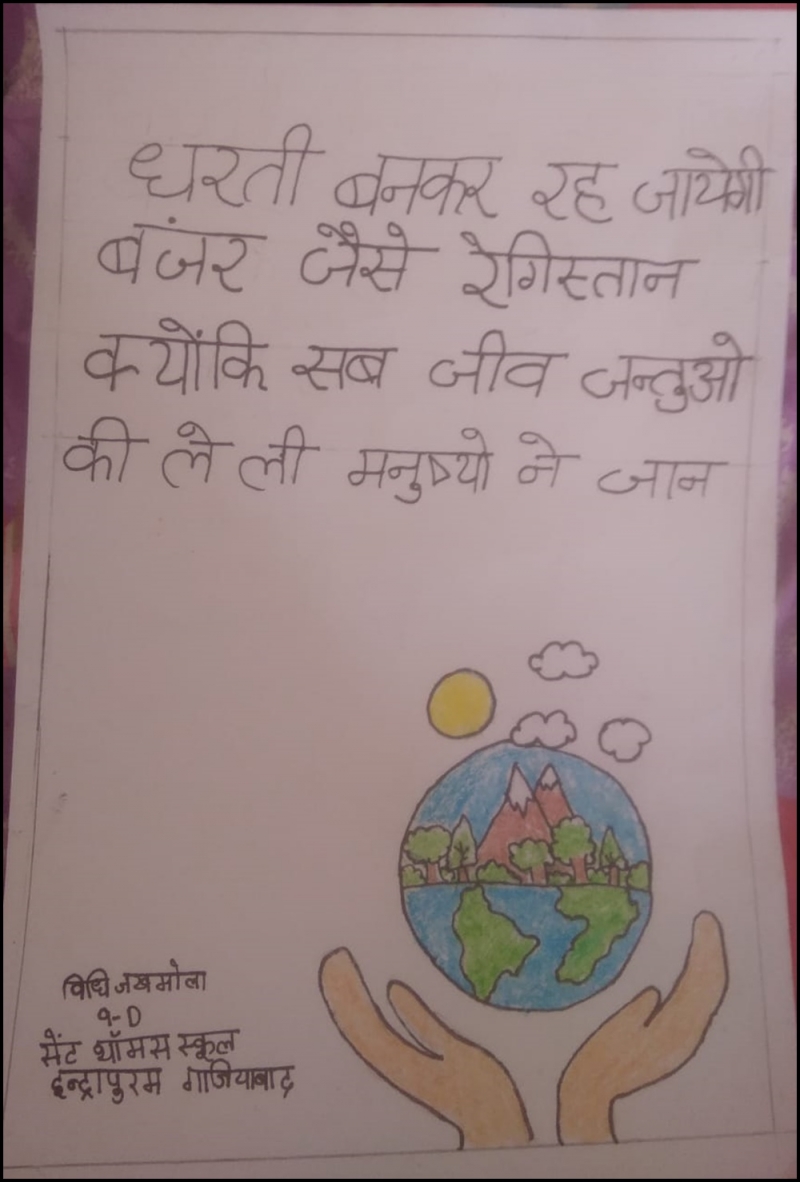 धरती बनकर रह जायेगी
बंजर जैसे रेगिस्तान
क्योंकि सब जीव जन्तुओ
की ले ली मनुष्यो ने जान
विधि जखमोला
9-D
सेंट थॉमस स्कूल
इन्द्रापुरम गाजियाबाद